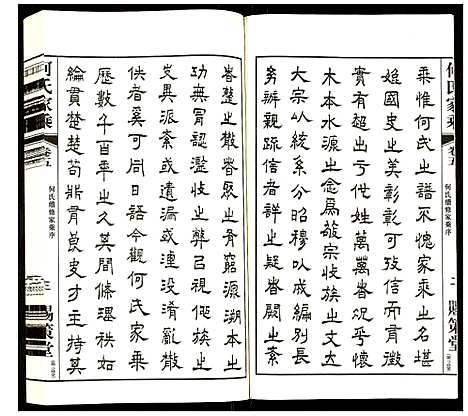 乘惟何氏之譜不愧家乘之名堪
媲國史之美彰彰可攷信而文
實有超出于他姓萬萬者光夫禮
木本水源之念爲敬宗收族之文
大宗以統小宗五世以內必編別長
务辨親疏信者詳之疑者闕之
眷整之散之骨窮源溯本之
功無冒認濫收之弊召視俺族之
支異派紊或遺漏或連没淆亂散
佚者奚可同日語今觀何氏家乘
歷數千百年之潭源秩秩如
綸貫楚楚苟非有良史才主持其
何氏家乘
卷五
何氏續修家乘序
二
賜策堂
何氏家乘
卷五
何氏續修家乘序
三
賜策堂